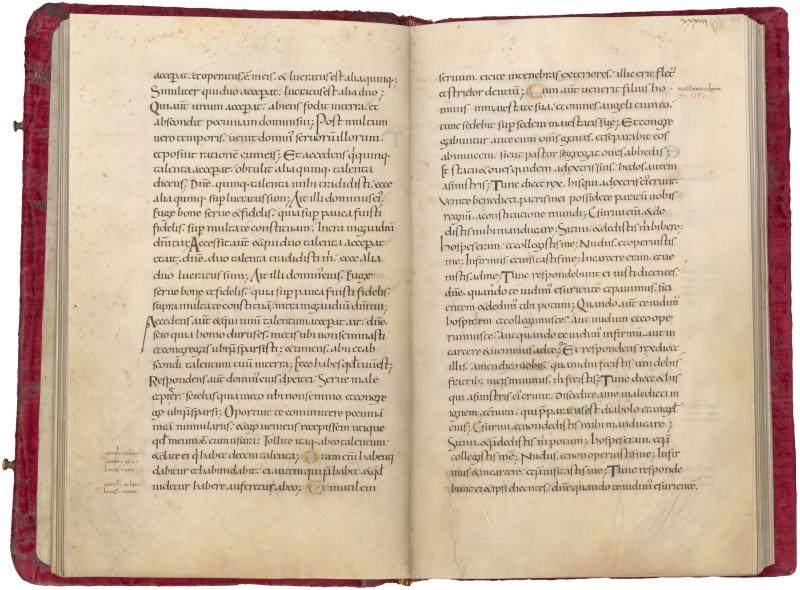 acceperat. et operatus ē in eis. & lucratus est alia quinq;
Similiter qui duo acceperat. lucratus est alia duo;
Qui aūt unum acceperat. abiens fodit in terra. et
abscondit pecuniam domini sui; Post multum
uero temporis. uenit domin' seruorum illorum.
et posuit rationē cum eis; Et accedens q̇ quinq;
talenta acceperat. obtulit alia quinq. talenta
dicens; Dn̄e. quinq. talenta mihi tradidisti. ecce
alia quinq. sup lucratus sum; Ait illi dominus ei';
Euge bone serue & fidelis. quia sup pauca fuisti
fidelis. sup multa te constituam. Intra in gaudiū
dn̄i tui; Accessit aūt & qui duo talenta acceperat
et ait. dn̄e. duo talenta tradidisti m̄. ecce alia
duo lucratus sum; Ait illi domin' eius. Euge
serue bone et fidelis. quia sup pauca fuisti fidelis.
supra multa te constituā. intra in gaudiū dn̄i tui;
Accedens aūt & qui unū talentum acceperat. ait. dn̄e.
scio quia homo durus es. metis ubi non seminasti
et congregas ubi n̄ sparsisti. & timens. abii et ab
scondi talentum tuū in terra; Ecce habes qđ tuū est;
Respondens aūt domin' eius dixit ei; Serue male
et piger. sciebas quia meto ubi non semino. et congre
go ubi n̄ sparsi; Oportuit te committere pecuniā
meā nummularis. & ego ueniens recepissem utique
qđ meum ē. cum usura; Tollite itaq. ab eo talentum.
& date ei q̇ habet decem talenta; Omni enī habenti
dabitur et habundabit. ei autem qui n̄ habet. & qđ
uidetur habere. auferetur ab eo; Et inutilem
seruum. eicite in tenebras exteriores. illic erit flet'
et stridor dentiū; Cum aūt uenerit filius ho
minis in maiestate sua. et omnes angeli cum eo.
tunc sedebit sup sedem maiestatis suę; Et congre
gabuntur ante eum om̄s gentes. et separabit eos
ab inuicem. sicut pastor segregat oues ab hedis;
Et statuet oues quidem a dextris suis. hedos autem
a sinistris; Tunc dicet rex. his qui a dextris ei' erunt.
Venite benedicti patris mei possidete paratū uobis
regnū. a constitutione mundi; Esuriui enī. & de
distis mihi manducare; Sitiui. & dedistis m̄ bibere;
Hospes eram. et collegistis me; Nudus. et operuistis
me; Infirmus. et uisitastis me; In carcere eram. et ue
nistis ad me; Tunc respondebunt ei iusti dicentes.
dn̄e. quando te uidim' esurientē. et pauimus. siti
entem & dedim' tibi potum; Quando aūt te uidim'
hospitem et collegimus te. aut nudum et coope
ruimus te. aut quando te uidim' infirmū. aut in
carcere & uenimus ad te; Et respondens rex dicet
illis. amen dico uobis. quandiu fecistis uni de his
fratrib; meis minimis. m̄ fecistis; Tunc dicet & his
qui a sinistris erunt. Discedite a me maledicti in
ignem ęternū. qui p̄paratus est diabolo et angel̄
eius; Esuriui enī. & non dedistis mihi manducare.
Sitiui. & n̄ dedistis m̄ potum; hospes eram. et n̄
collegistis me; Nudus. et non operuistis me; Infir
mus & in carcere. et n̄ uisitastis me; Tunc responde
bunt ei & ipsi dicentes. dn̄e quando te uidim' esurientē.